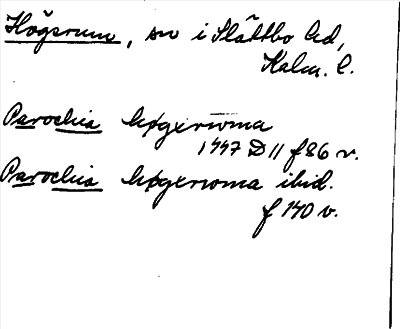 Högsrum, sn i Slättbo hd,
Kalm. l.
Parochia høgeroma
1447 D 11 f 86 v.
Parochia høgeroma ibid.
f 140 v.